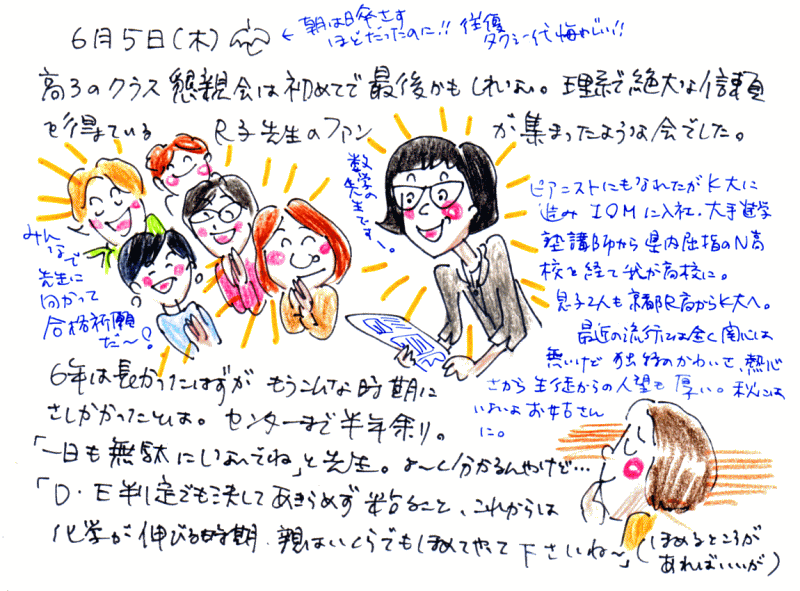 6月5日(木)
←朝は日が差す
ほどだったのに!! 往復
タクシー代悔しい!!
高3のクラス懇親会は初めてで最後かもしれない。理系で絶大な信頼
を得ている R子先生のファン が集まったような会でした。
数学の
先生です〜。
みんなで
先生に
向かって
合格祈願
だ〜!
ピアニストにもなれたがK大に
進み IOMに入社。大手進学
塾講師から県内屈指のN高
校を経て我が高校に。
息子2人も京都R高からK大へ。
最近の流行には全く関心は
無いけど 独特のかわいさ、熱心
さから生徒からの人望も厚い。秋には
いよいよお姑さん
に。
6年は長かったはずが もうこんな時期に
さしかかったとは。センターまで半年余り。
「一日も無駄にしないでね」と先生。よ〜く分かるんやけど…
「D・E判定でも決してあきらめず 粘ること、これからは
化学が伸びる時期、親はいくらでもほめてやって下さいね〜」(ほめるところが
あればいいが)